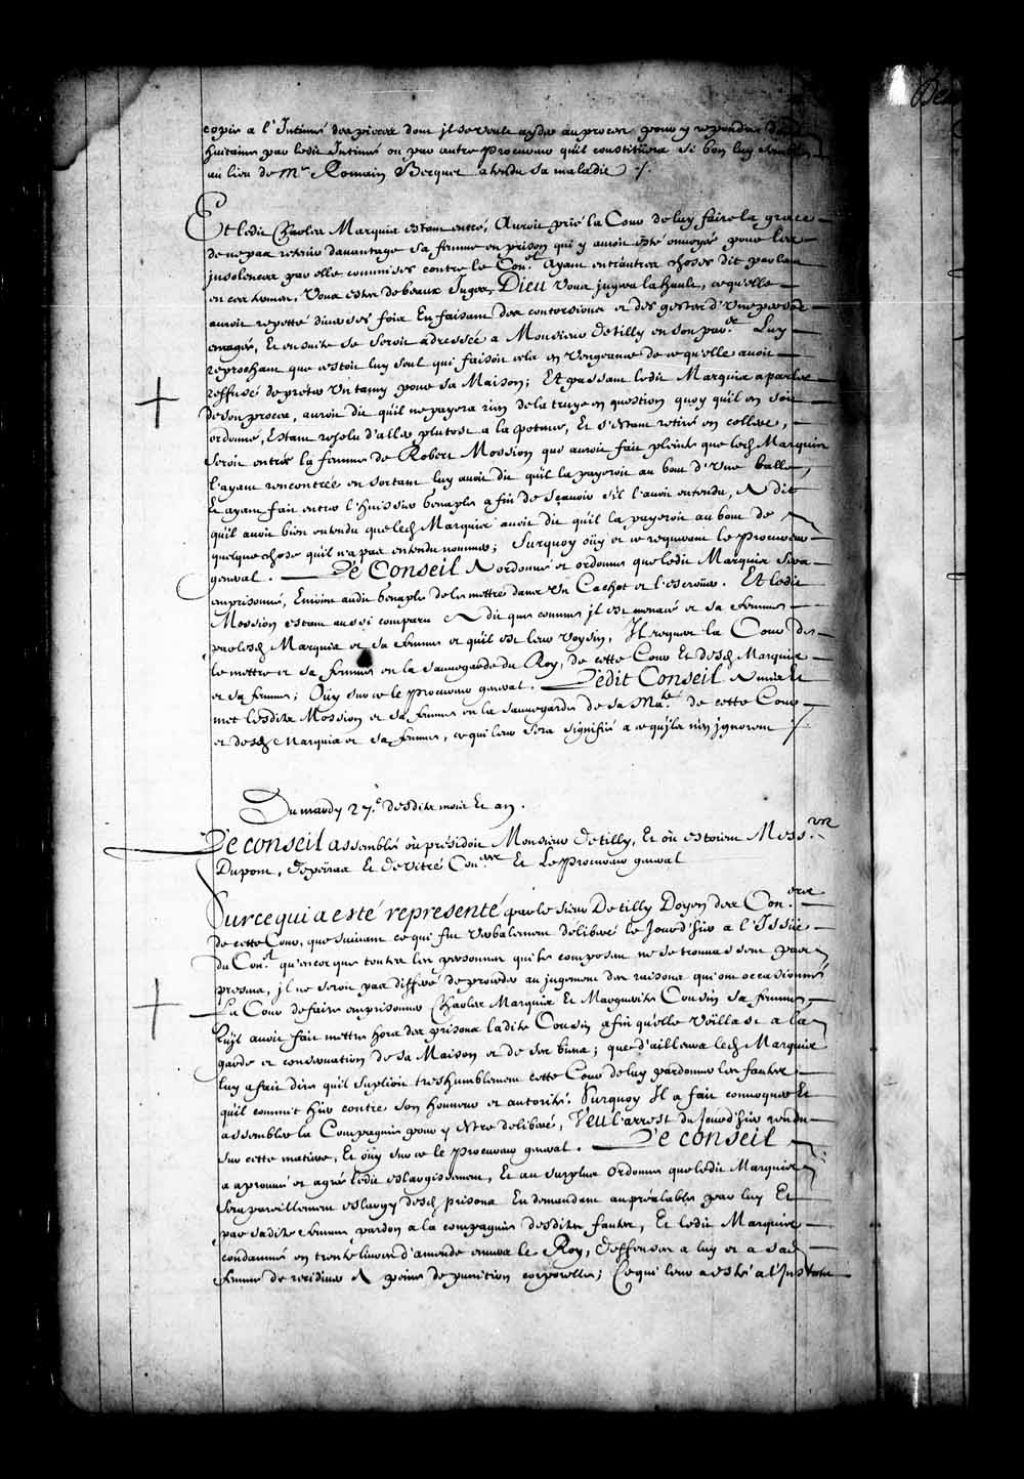 copie a l'Intimé des pieces dont il se veult ayder au procez pour y repondre dans
huitaine par ledit Intimé ou par autre procureur qu'il constituera si bon luy semble
au lieu de Me Romain Becquet attendu sa maladie ./.
Et ledit Charles Marquis estant entré, Auroit prié la Cour de luy faire la grace
de ne pas retenir davantage sa femme en prison qui y auroit esté envoyée pour les
insolences par elle commises contre le Conel ayant entr'autres choses dit parlant
en ces termes, Vous estes de beaux Juges, Dieu vous jugera la hault, ce qu'elle
auroit repetté diverses fois En faisant des contorsions et des gestes d'Une personne
enragée, Et ensuite se seroit adressée a Monsieur de Tilly en son parer Luy
reprochant que c'estoit luy seul qui faisoit cela en vengeance de ce qu'elle avoit
reffusé de prester Un tamy pour sa Maison; Et passant ledit Marquis a parler
de son procez, auroit dit qu'il ne payera rien de la truye en question quoy qu'il en soit
ordonné, Estant resolu d'aller plutost a la potence, Et s'estant retiré en collere,
Seroit entrée la femme de Robert Mossion qui auroit fait plainte que led. Marquis
l'ayant rencontrée en sortant luy avoit dit qu'il la payeroit au bout d'Une balle,
Et ayant fait entrer l'huissier Genaple afin de sçavoir s'il l'avoit entendu, A dit
qu'il avoit bien entendu que led. Marquis avoit dit qu'il la payeroit au bout de
quelque chose qu'il n'a pas entendu nommer; Surquoy oüy et ce requerant le procureur
general. Le Conseil A ordonné et ordonne que ledit Marquis sera
emprisonné, Enjoint audit Genaple de les mettre dans Un Cachot et l'escroüer. Et ledit
Mossion estant aussi comparu A dit que comme il est menacé et sa femme
par lesd. Marquis et sa femme et qu'il est leur voysin, Il requiert la Cour de
le mettre et sa femme en la sauvegarde du Roy, de cette Cour Et desd. Marquis
et sa femme; Oüy sur ce le procureur general. Ledit Conseil A mis Et
met lesdits Mossion et sa femme en la sauvegarde de sa Maté de cette Cour
et desd. Marquis et sa femme, ce qui leur sera signifié a ce qu'ils n'en ignorent ./.
Du mardy 27.e desdits mois Et an.
Le conseil assemblé où présidoit Monsieur de Tilly, Et où estoient Messrs
Dupont, depeiras Et de Vitré Coners Et Le procureur general
Sur ce qui a esté representé par le sieur De Tilly Doyen des Coners
de cette Cour, que suivant ce qui fut verbalement délibéré le Jour d'hier a l'Issüe
du Conel qu'encor que toutes les personnes qui le composent ne se trouvassent pas
presens, il ne seroit pas différé de proceder au jugement des raisons qui ont occasionné
La Cour de faire emprisonner Charles Marquis Et Marguerite Cousin sa femme,
Luy avoir fait mettre hors des prisons ladite Cousin afin qu'elle veillast a la
garde et conservation de sa Maison et de ses biens; que d'ailleurs led. Marquis
luy a fait dire qu'il suplioit tres humblement cette Cour de luy pardonner les fautes
qu'il commit hier contre son honneur et autorité. Surquoy Il a fait convoquer Et
assembler la Compagnie pour y estre deliberé, Veu l'arrest du Jour d'hier rendu
sur cette matiere, Et oüy sur ce le procureur general. Le conseil
a aprouvé et agréé ledit eslargissement, Et au surplus ordonne que ledit Marquis
sera pareillement eslargy desd. prisons En demandant au préalable par luy Et
par sadite femme pardon a la compagnie desdites fautes, Et ledit Marquis
condamné en trente livres d'amende envers le Roy, deffenses a luy et a sad.
femme de recidiver A peine de punition corporelle; Ce qui leur a esté a l'Instant